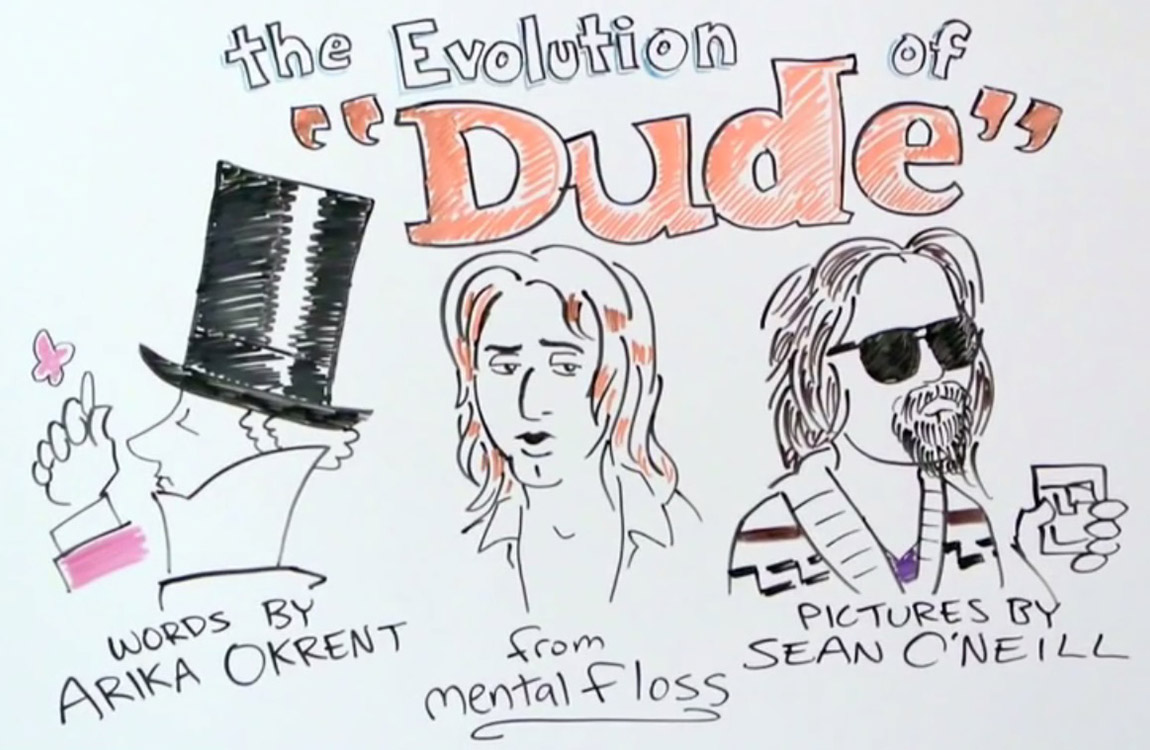 the Evolution of
"Dude"
WORDS BY
ARIKA OKRENT
from
mental floss
PICTURES BY
SEAN O'NEILL